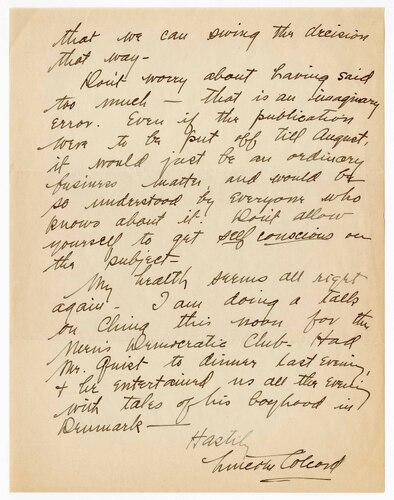 that we can swing the decision
that way -
Don't worry about having said
too much — that is an imaginary
error. Even if the publication
were to be put off till August,
it would just be an ordinary
business matter, and would be
so understood by everyone who
knows about it. Don't allow
yourself to get self conscious on
the subject -
My health seems all right
again - I am doing a talk
on China this noon for the
Men's Democratic Club - Had
Mr. Quist to dinner last evening,
& he entertained us all the evening
with tales of his boyhood in
Denmark —
Hastily
Lincoln Colcord